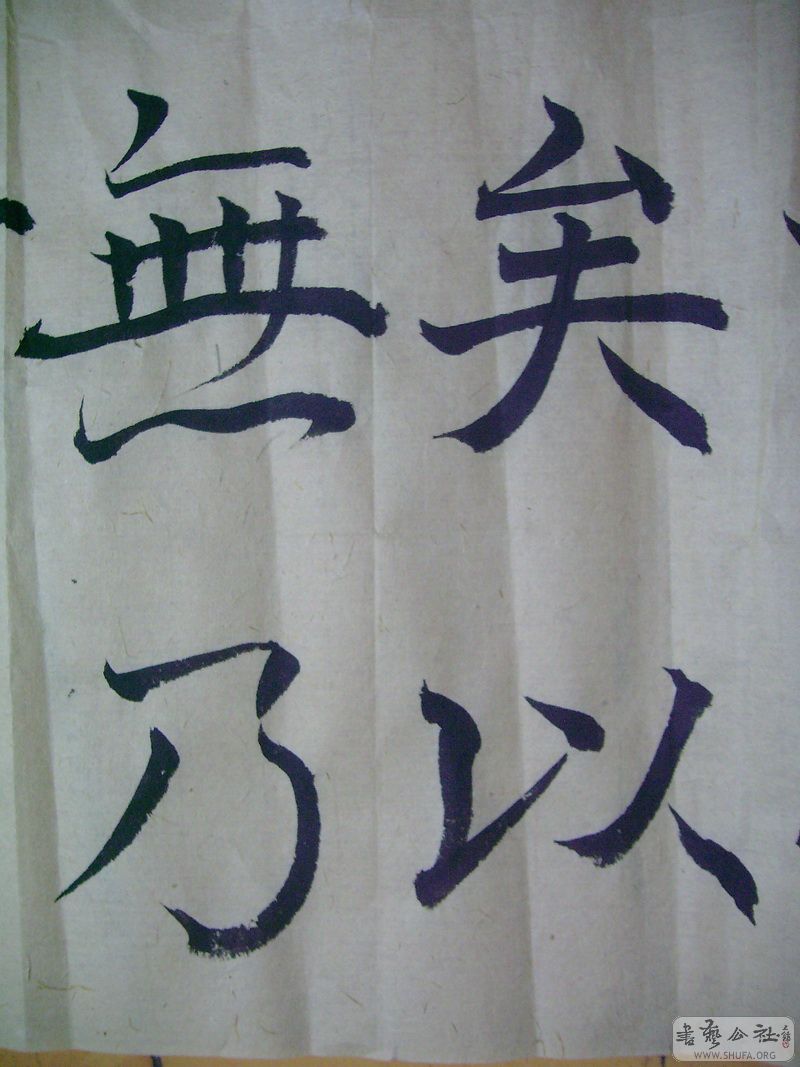 矣以
無乃
書藝公社
WWW.SHUFA.ORG